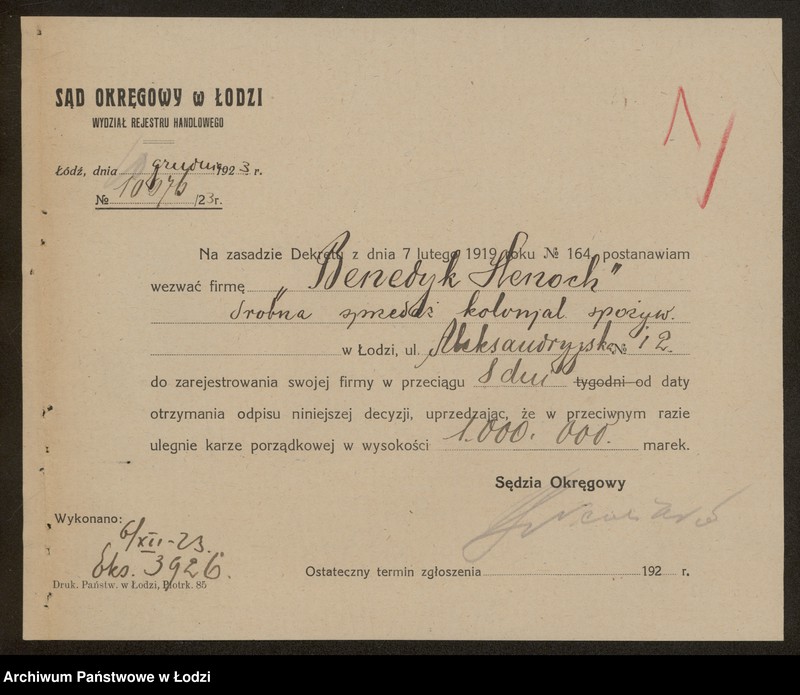 SĄD OKRĘGOWY w ŁODZI
WYDZIAŁ REJESTRU HANDLOWEGO
Łódź, dnia grudnia 1923 r.
№ 10976/23r.
Na zasadzie Dekretu z dnia 7 lutego 1919 roku № 164, postanawiam
wezwać firmę „Benedyk Henoch"
drobna sprzedaż kolonjal. spożyw.
w Łodzi, ul. Aleksandryjska № 12.
do zarejestrowania swojej firmy w przeciągu 8 dni tygodni od daty
otrzymania odpisu niniejszej decyzji, uprzedzając, że w przeciwnym razie
ulegnie karze porządkowej w wysokości 1.000.000. marek.
Sędzia Okręgowy
Wykonano:
6/XII-23.
Eks. 3926.
Ostateczny termin zgłoszenia 192 r.
Druk. Państw. w Łodzi, Piotrk. 85
Archiwum Państwowe w Łodzi